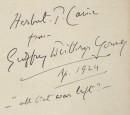 Herbert T. Caine
from
Geoffrey Winthrop Young
Ap. 1924
"all that was left"